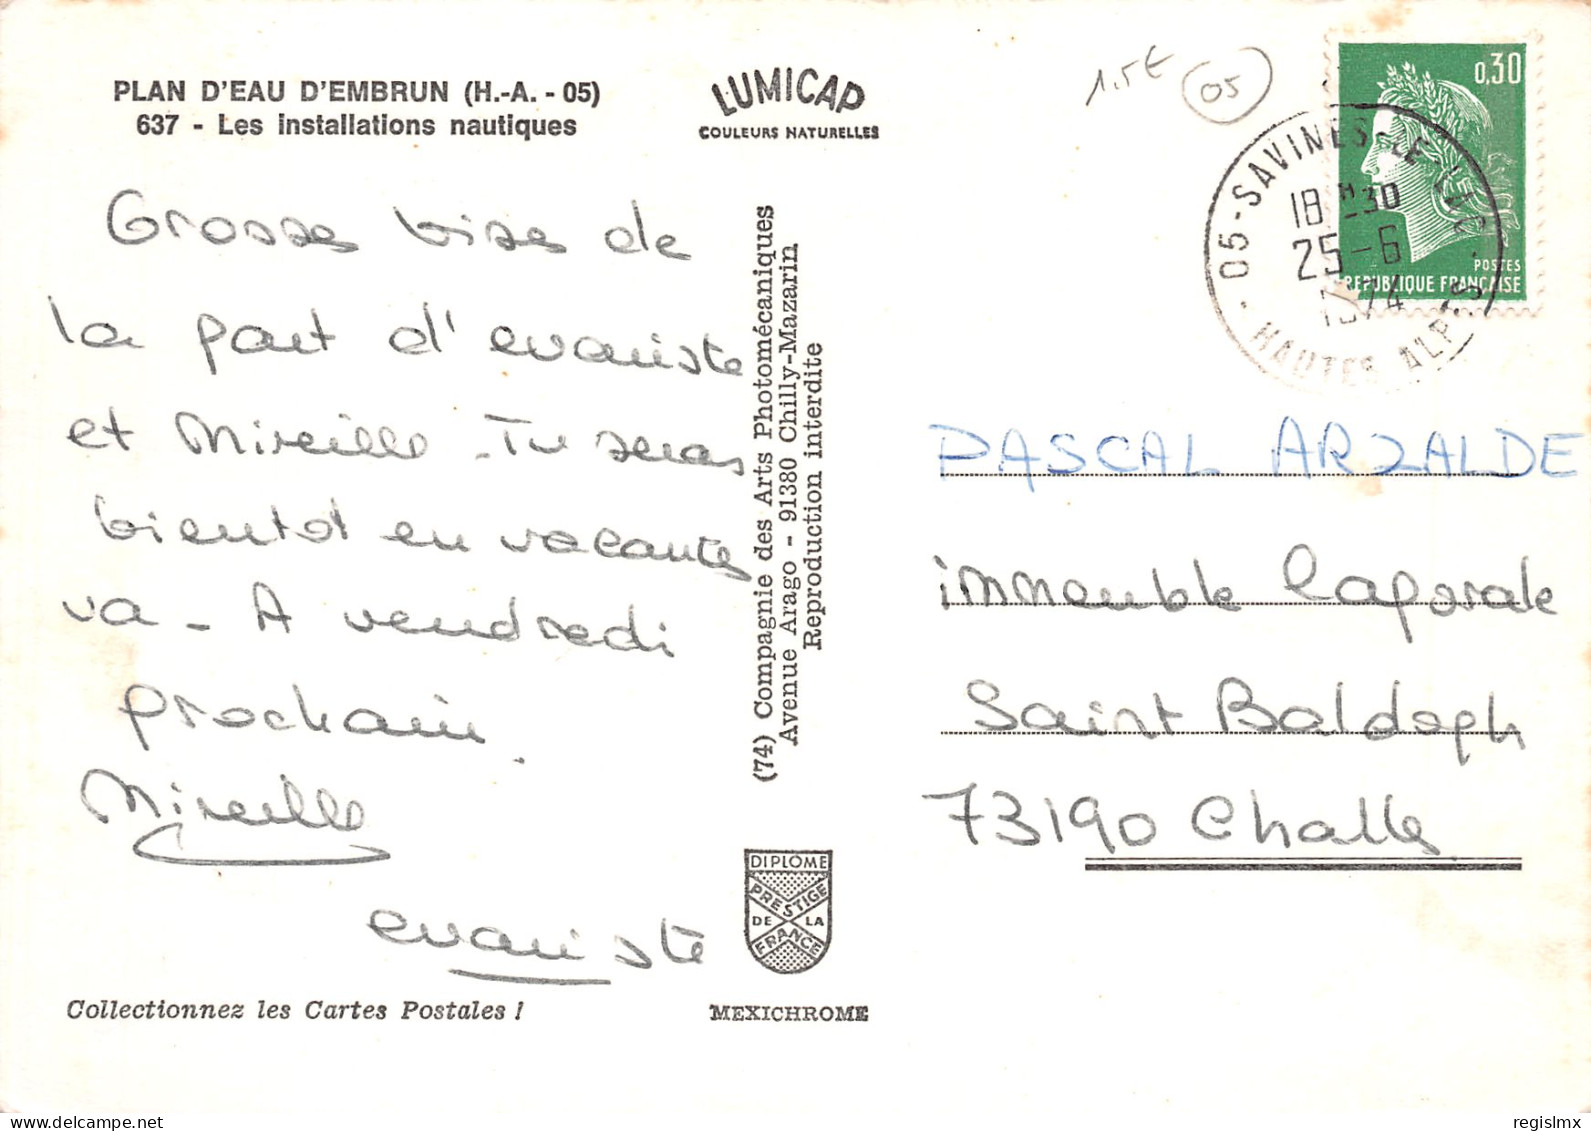 PLAN D'EAU D'EMBRUN (H.-A. - 05)
637 - Les installations nautiques
LUMICAP
COULEURS NATURELLES
1.5€
05
0,30
POSTES
REPUBLIQUE FRANÇAISE
05 - SAVINES-LE-LAC
18H30
25-6
1974
HAUTES ALPES
Grosses bises de
la part d'evariste
et Mireille - Tu seras
bientot en vacantes
va - A vendredi
prochain.
Mireille
evariste
(74) Compagnie des Arts Photomécaniques
Avenue Arago - 91380 Chilly-Mazarin
Reproduction interdite
PASCAL ARZALDE
immeuble
Saint Baldoph
73190 Challes
DIPLOME
PRESTIGE
DE LA
FRANCE
Collectionnez les Cartes Postales !
MEXICHROME
regislmx